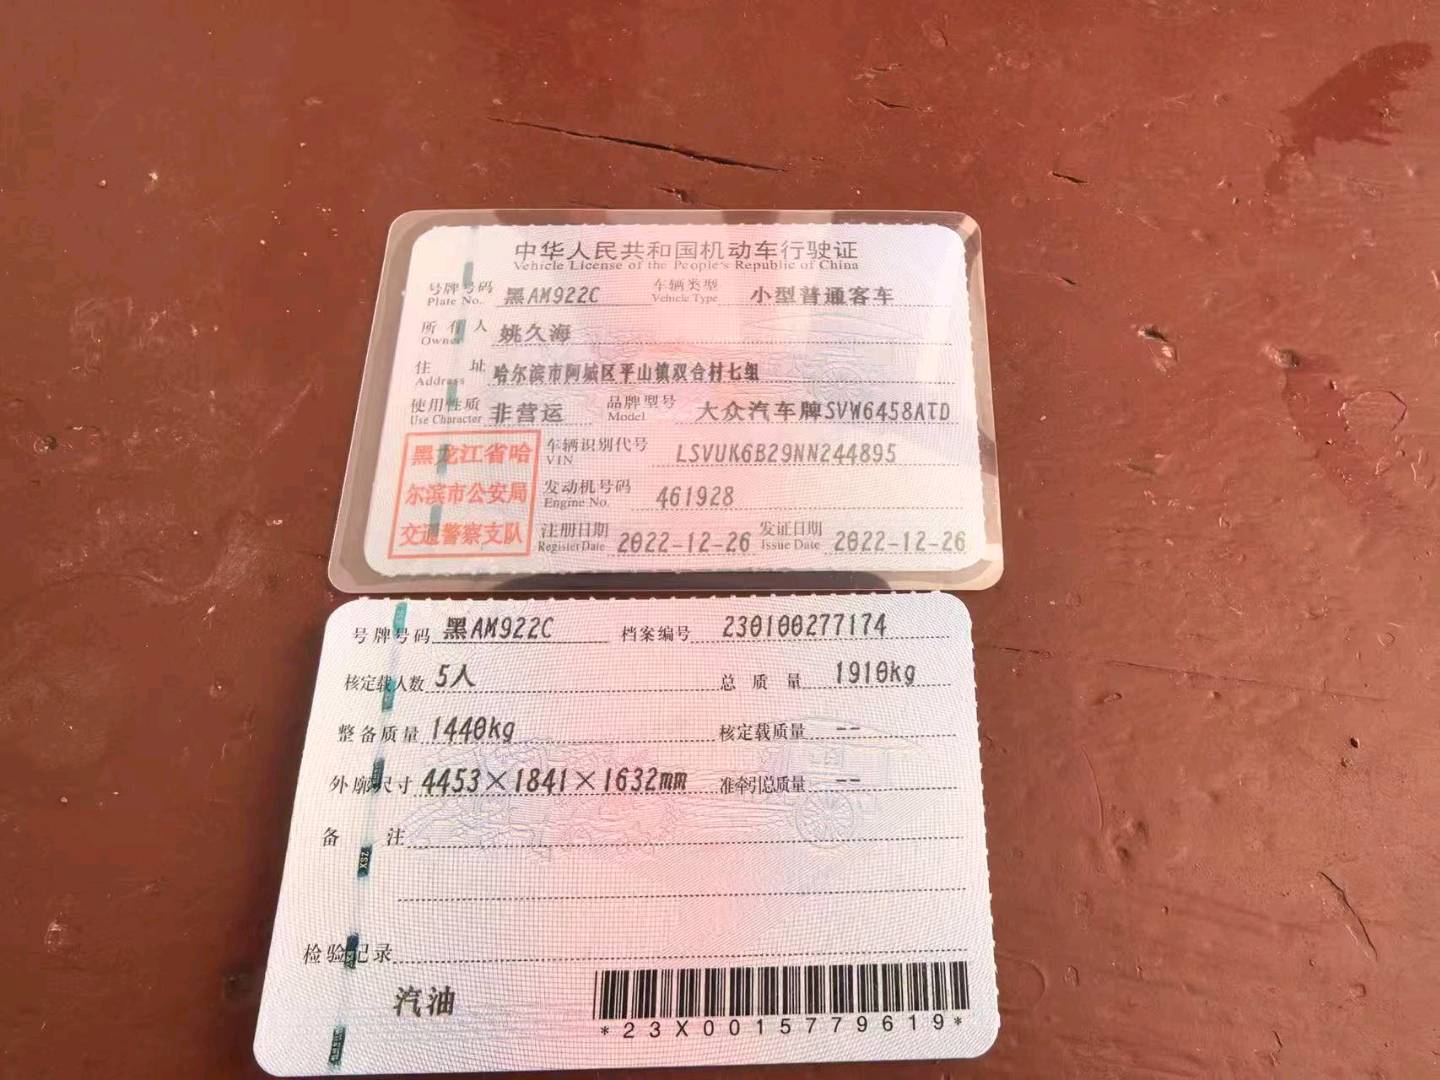 中华人民共和国机动车行驶证
Vehicle License of the People's Republic of China
号牌号码 黑AM922C 车辆类型 小型普通客车
Plate No. Vehicle Type
所有人 姚久海
Owner
住址 哈尔滨市阿城区平山镇双合村七组
Address
使用性质 非营运 品牌型号 大众汽车牌SVW6458ATD
Use Character Model
黑龙江省哈
尔滨市公安局
交通警察支队
车辆识别代号 LSVUK6B29NN244895
VIN
发动机号码 461928
Engine No.
注册日期 2022-12-26 发证日期 2022-12-26
Register Date Issue Date
号牌号码 黑AM922C 档案编号 230100277174
核定载人数 5人 总质量 1910kg
整备质量 1440kg 核定载质量 --
外廓尺寸 4453×1841×1632mm 准牵引总质量 --
备注
检验记录
汽油
*23X0015779619*